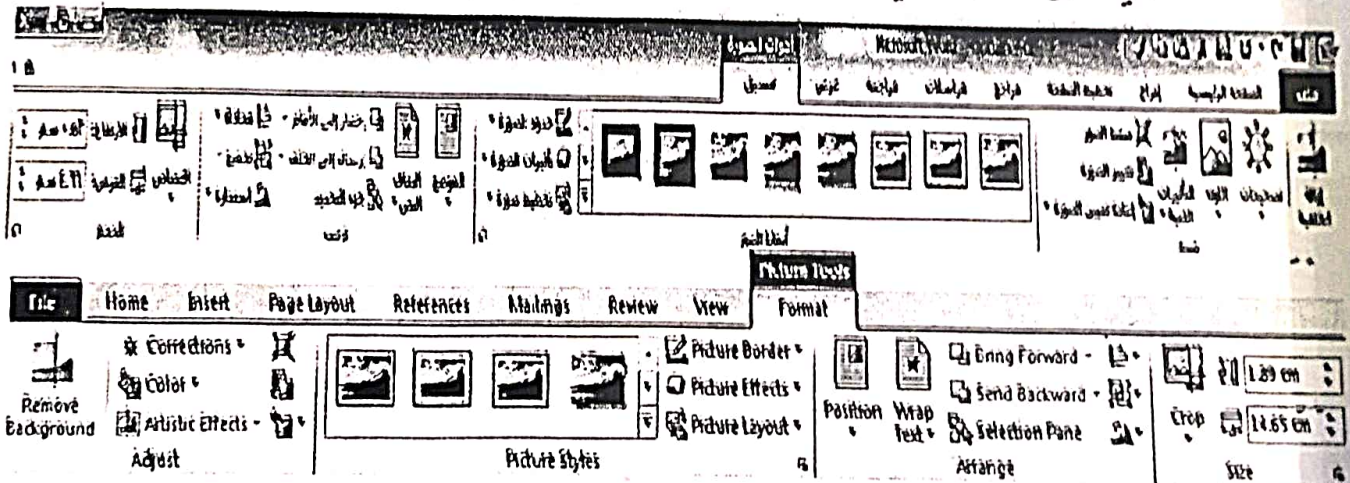 أدوات الصورة
Microsoft Word
ملف
الصفحة الرئيسية
إدراج
تخطيط الصفحة
مراجع
مراسلات
مراجعة
عرض
تنسيق
تصحيحات
اللون
التأثيرات الفنية
ضغط الصور
تغيير الصورة
إعادة تعيين الصورة
ضبط
أنماط الصور
حدود الصورة
تأثيرات الصورة
تخطيط صورة
الموضع
التفاف النص
إحضار إلى الأمام
إرسال إلى الخلف
جزء التحديد
محاذاة
تجميع
استدارة
ترتيب
اقتصاص
الارتفاع:
العرض:
الحجم
Picture Tools
File
Home
Insert
Page Layout
References
Mailings
Review
View
Format
Remove Background
Corrections
Color
Artistic Effects
Adjust
Picture Styles
Picture Border
Picture Effects
Picture Layout
Position
Wrap Text
Bring Forward
Send Backward
Selection Pane
Arrange
Crop
1.89 cm
14.65 cm
Size